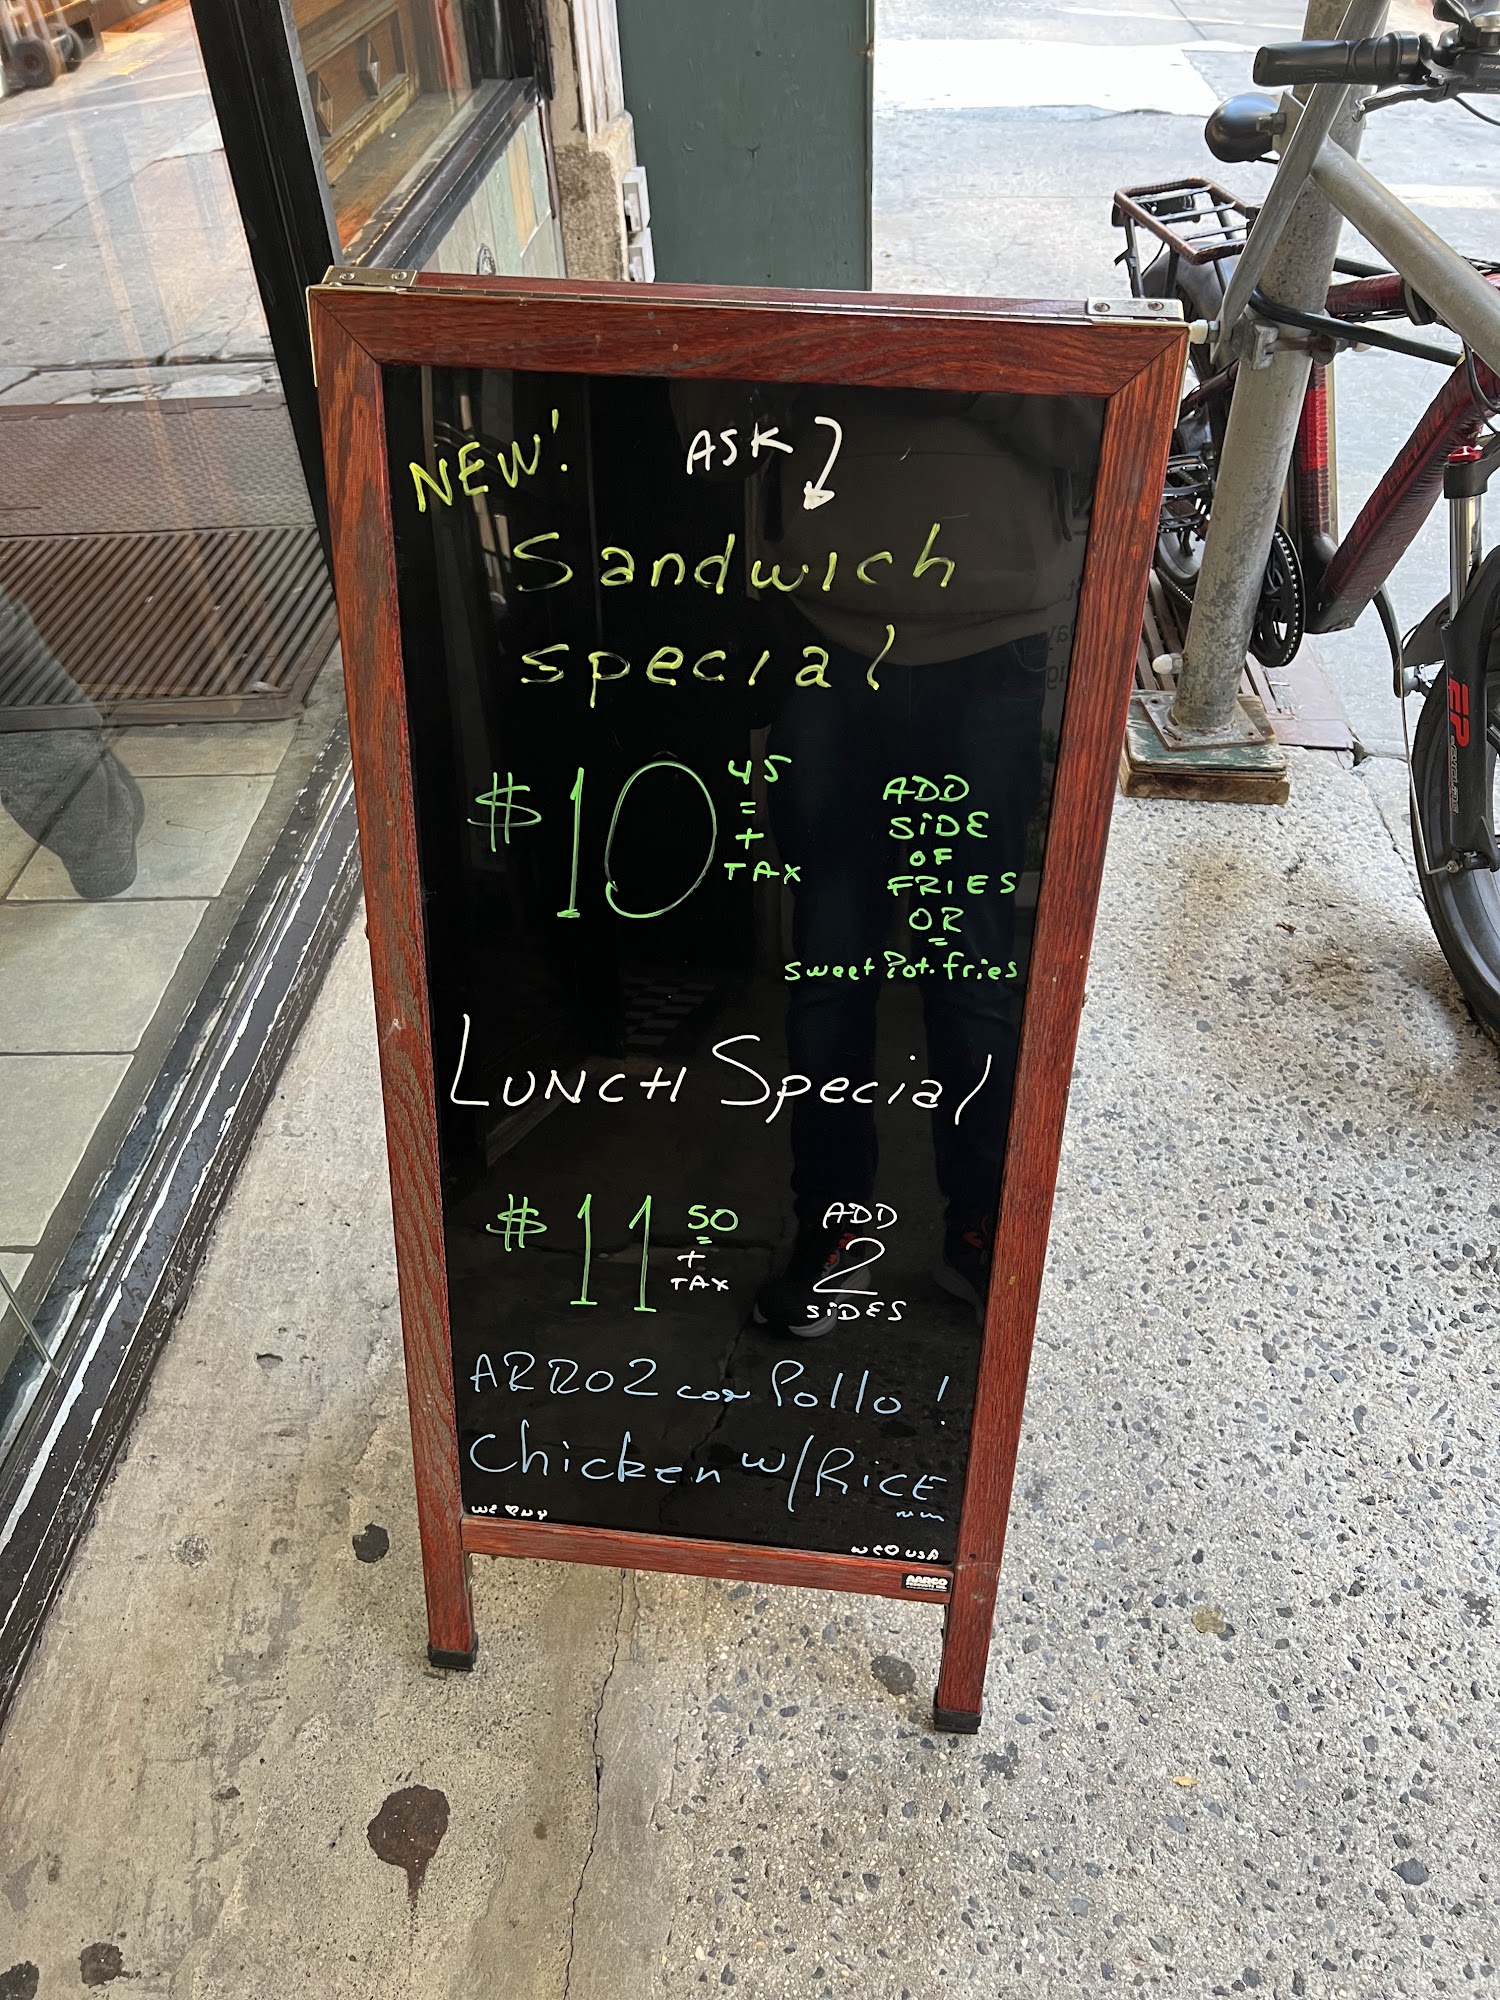 NEW!
ASK
Sandwich
special
$10 45
+
TAX
ADD
SiDE
OF
FRIES
OR
sweet Pot. fries
LUNCH Special
$11 50
+
TAX
ADD
2
SiDES
ARROZ con Pollo!
Chicken w/ RiCE
we ♡ NY
we ♡ USA
AARCO
EP